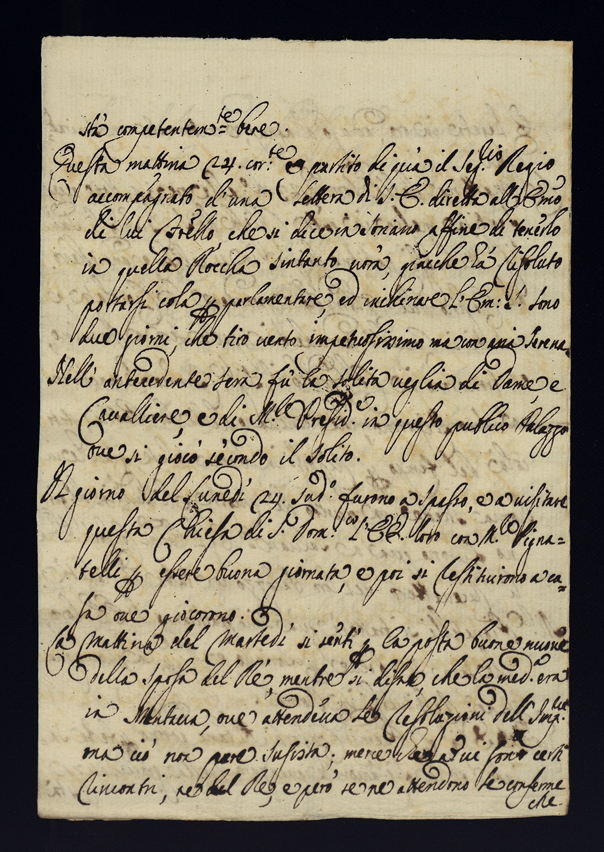 stà competentem.te bene.
Questa mattina 24. cor.te è partito di quà il Seg.rio Regio
accompagnato d'una Lettera di S. E. diretta all'Emo
di lui Fratello che si dice in Soriano affine di tenerlo
in quella Roccha sintanto vorà, giacche hà risoluto
portarsi cola p parlamentare, ed inchinare l'Em: S. Sono
due giorni, che tiro vento impetuosissimo ma con aria serena.
Nell' antecedente sera fù la solita veglia di Dame, e
Cavalliere, e di M.re Presid.e in questo publico Palazzo
ove si giocò secondo il solito.
Il giorno del Lunedì 24. Sud.o furono a spasso, e a visitare
questa Chiesa di S. Dom.co l'EE. loro con M.re Pigna=
telli p essere buona giornata, e poi si restituirono a ca=
sa ove giocorono.
La mattina del Martedì si sentì p la posta buone nuove
della sposa del Rè, mentre si disse, che la med.a era
in Mantova, ove attendeva le resolazioni dell'Imp.re
ma ciò non pare sussista, merce che non vi sono certi
rincontri, ne del Rè, e però se ne attendono le conferme
che.